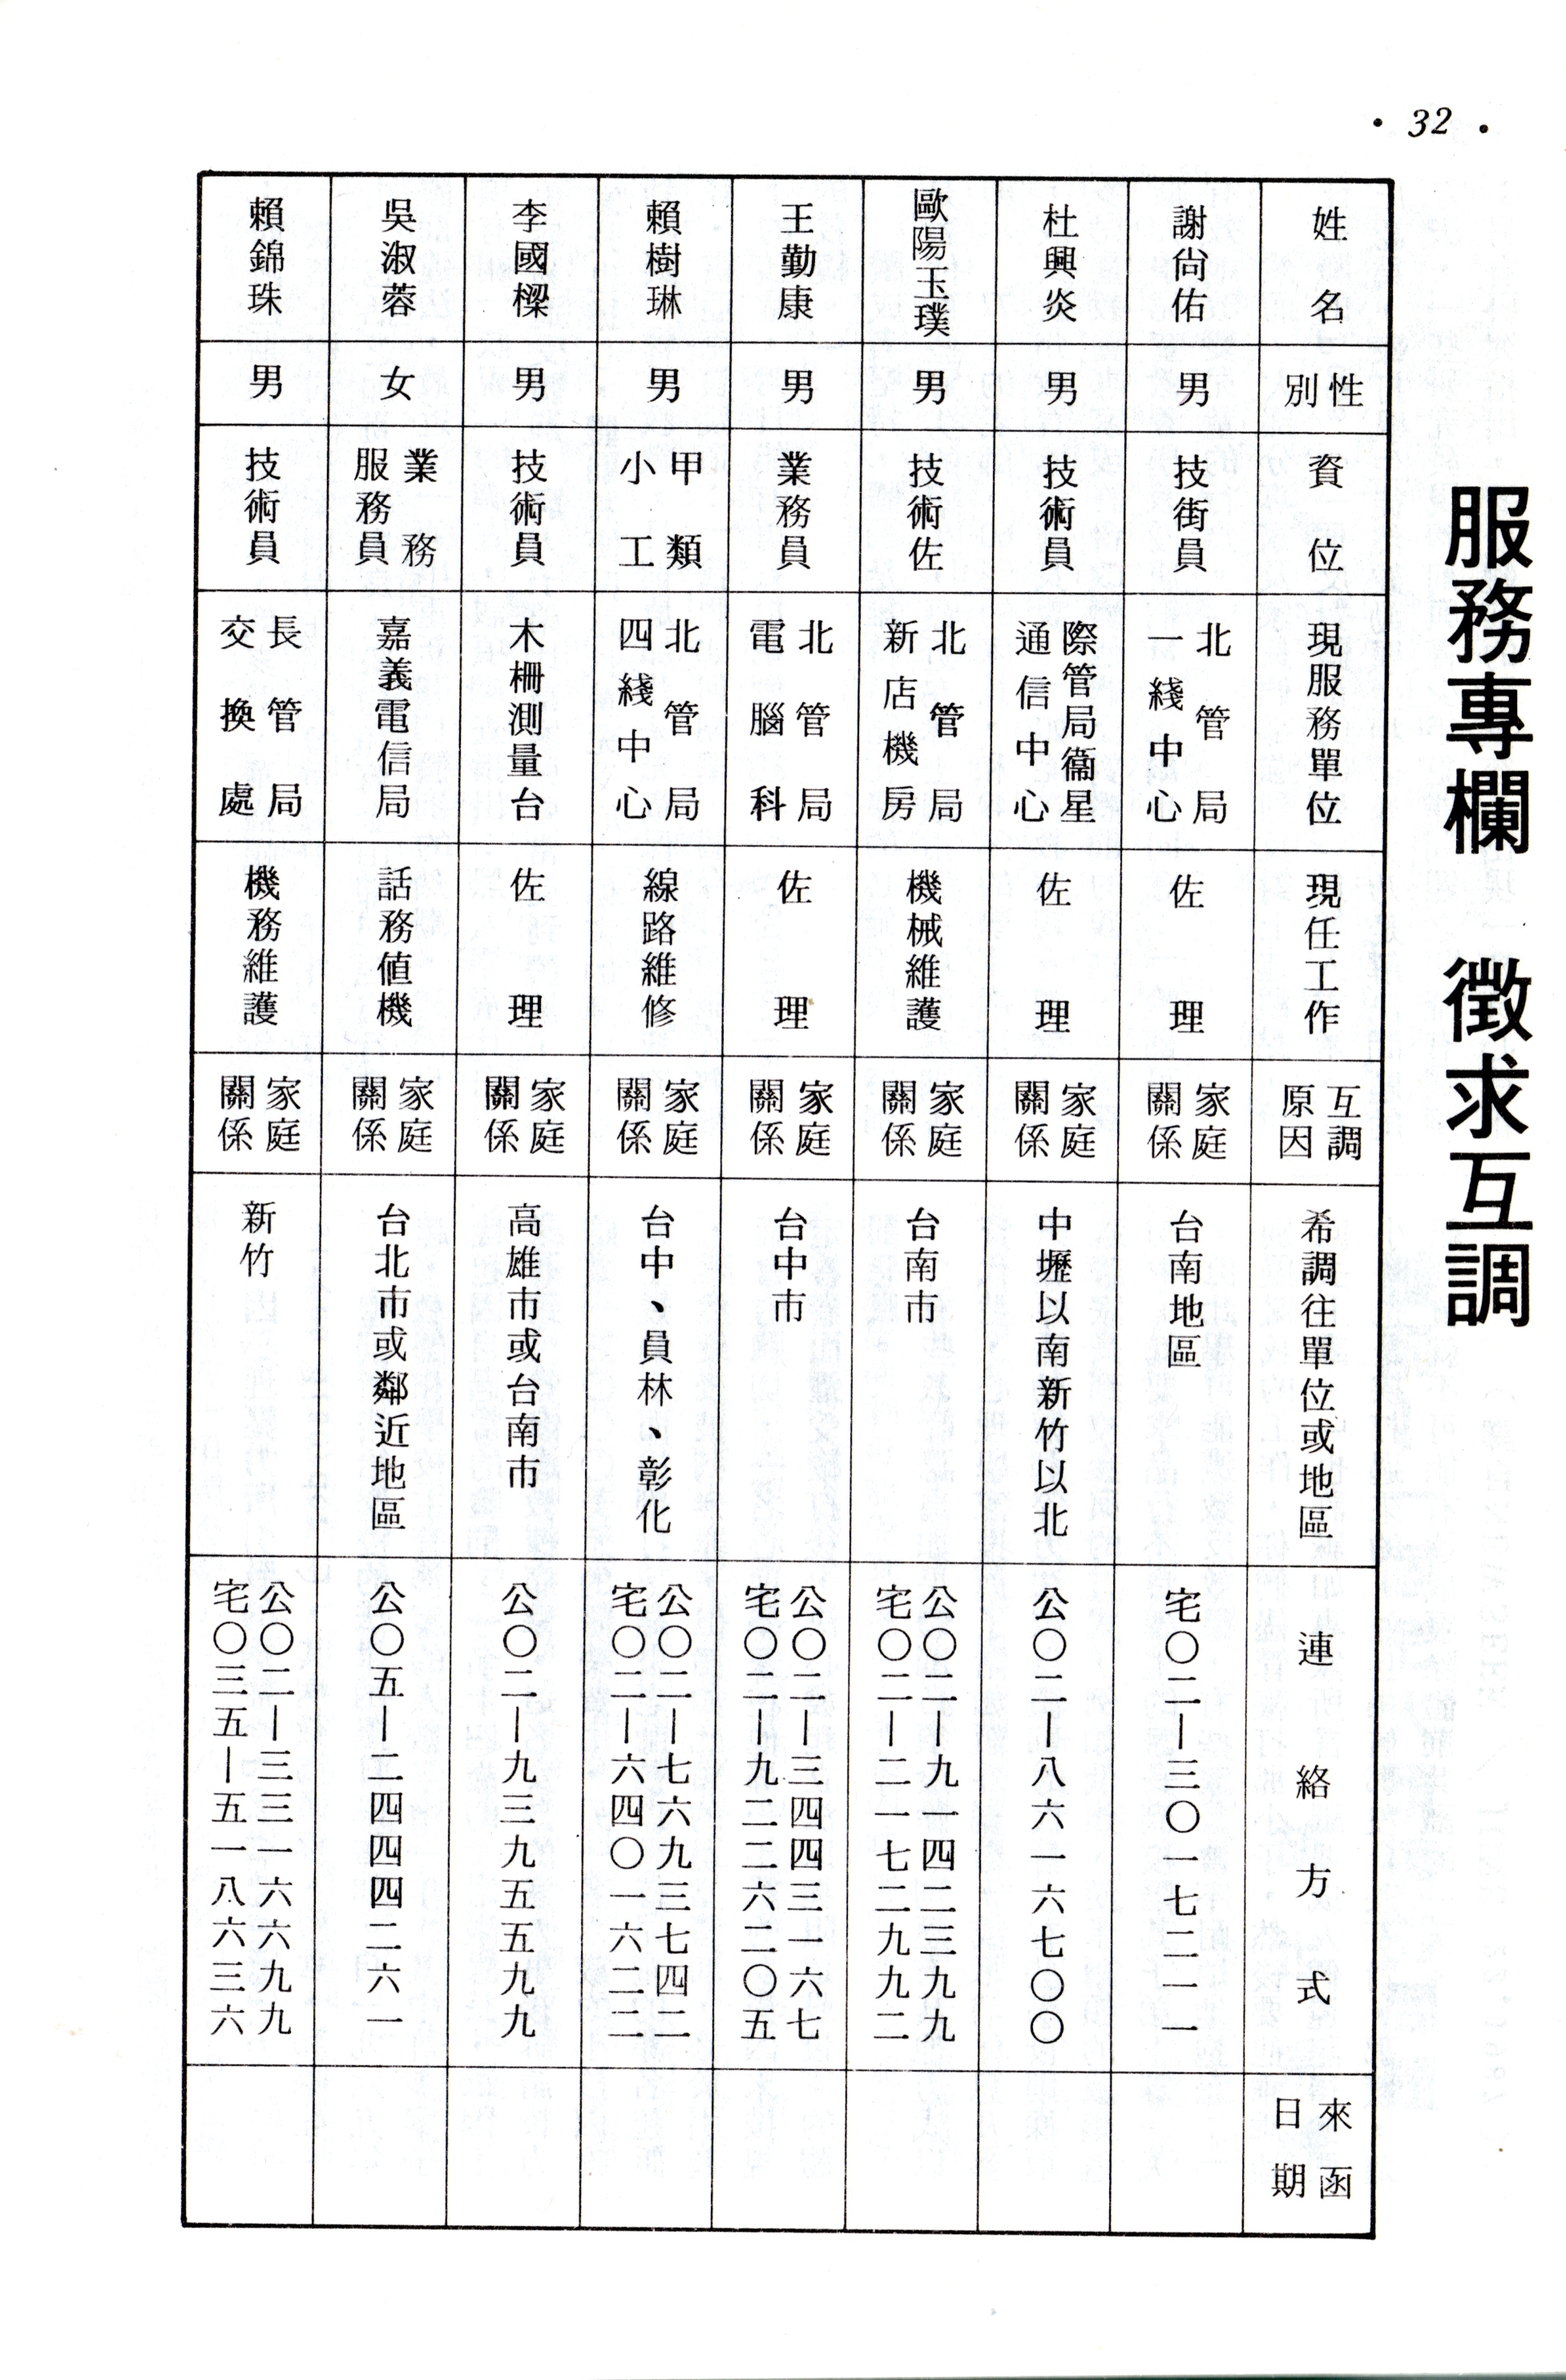 • 32 •
服務專欄 徵求互調
姓名
性別
資位
現服務單位
現任工作
互調
原因
希調往單位或地區
連絡方式
來函
日期
謝尙佑
男
技街員
北管局
一綫中心
佐理
家庭
關係
台南地區
宅〇二—三〇一七二一一
杜興炎
男
技術員
際管局衞星
通信中心
佐理
家庭
關係
中壢以南新竹以北
公〇二—八六一六七〇〇
歐陽玉璞
男
技術佐
北管局
新店機房
機械維護
家庭
關係
台南市
公〇二—九一四二三九九
宅〇二—二一七二九九二
王勤康
男
業務員
北管局
電腦科
佐理
家庭
關係
台中市
公〇二—三四四三一六七
宅〇二—九二二六二〇五
賴樹琳
男
甲類
小工
北管局
四綫中心
線路維修
家庭
關係
台中、員林、彰化
公〇二—七六九三七四二
宅〇二—六四〇一六二二
李國樑
男
技術員
木柵測量台
佐理
家庭
關係
高雄市或台南市
公〇二—九三九五五九九
吳淑蓉
女
業務
服務員
嘉義電信局
話務値機
家庭
關係
台北市或鄰近地區
公〇五—二四四四二六一
賴錦珠
男
技術員
長管局
交換處
機務維護
家庭
關係
新竹
公〇二—三三一六六九九
宅〇三五—五一八六三六